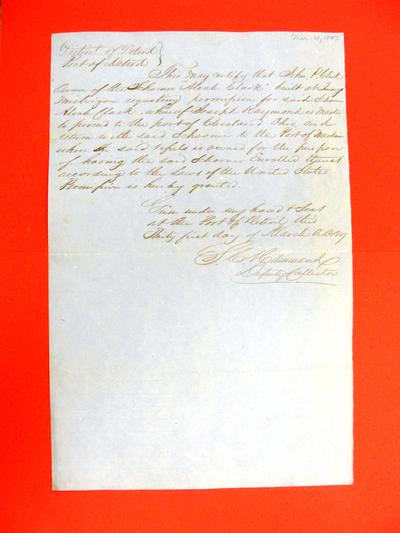 Mar. 31, 1847
District of Detroit
Port of Detroit
This may certify that John P Clark
Owner of the Schooner Alvah Clark built at
Michigan requesting permission for said Schooner
Clark, whereof Joseph Raymond is Master
to proceed to the port of Cleveland Ohio, and
return with said Schooner to the Port of
when the said is owned for the purpose
of having the said Schooner Enrolled
according to the Laws of the United States
Permission is hereby granted.
Given under my hand & Seal
at the Port of Detroit this
Thirty first day of March
Deputy Collector